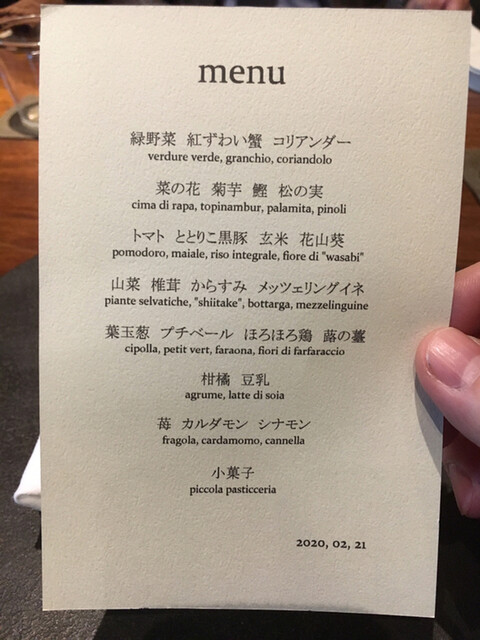 menu
緑野菜 紅ずわい蟹 コリアンダー
verdure verde, granchio, coriandolo
菜の花 菊芋 鰹 松の実
cima di rapa, topinambur, palamita, pinoli
トマト ととりこ黒豚 玄米 花山葵
pomodoro, maiale, riso integrale, fiore di "wasabi"
山菜 椎茸 からすみ メッツェリングイネ
piante selvatiche, "shiitake", bottarga, mezzelinguine
葉玉葱 プチベール ほろほろ鶏 蕗の薹
cipolla, petit vert, faraona, fiori di farfaraccio
柑橘 豆乳
agrume, latte di soia
苺 カルダモン シナモン
fragola, cardamomo, cannella
小菓子
piccola pasticceria
2020, 02, 21